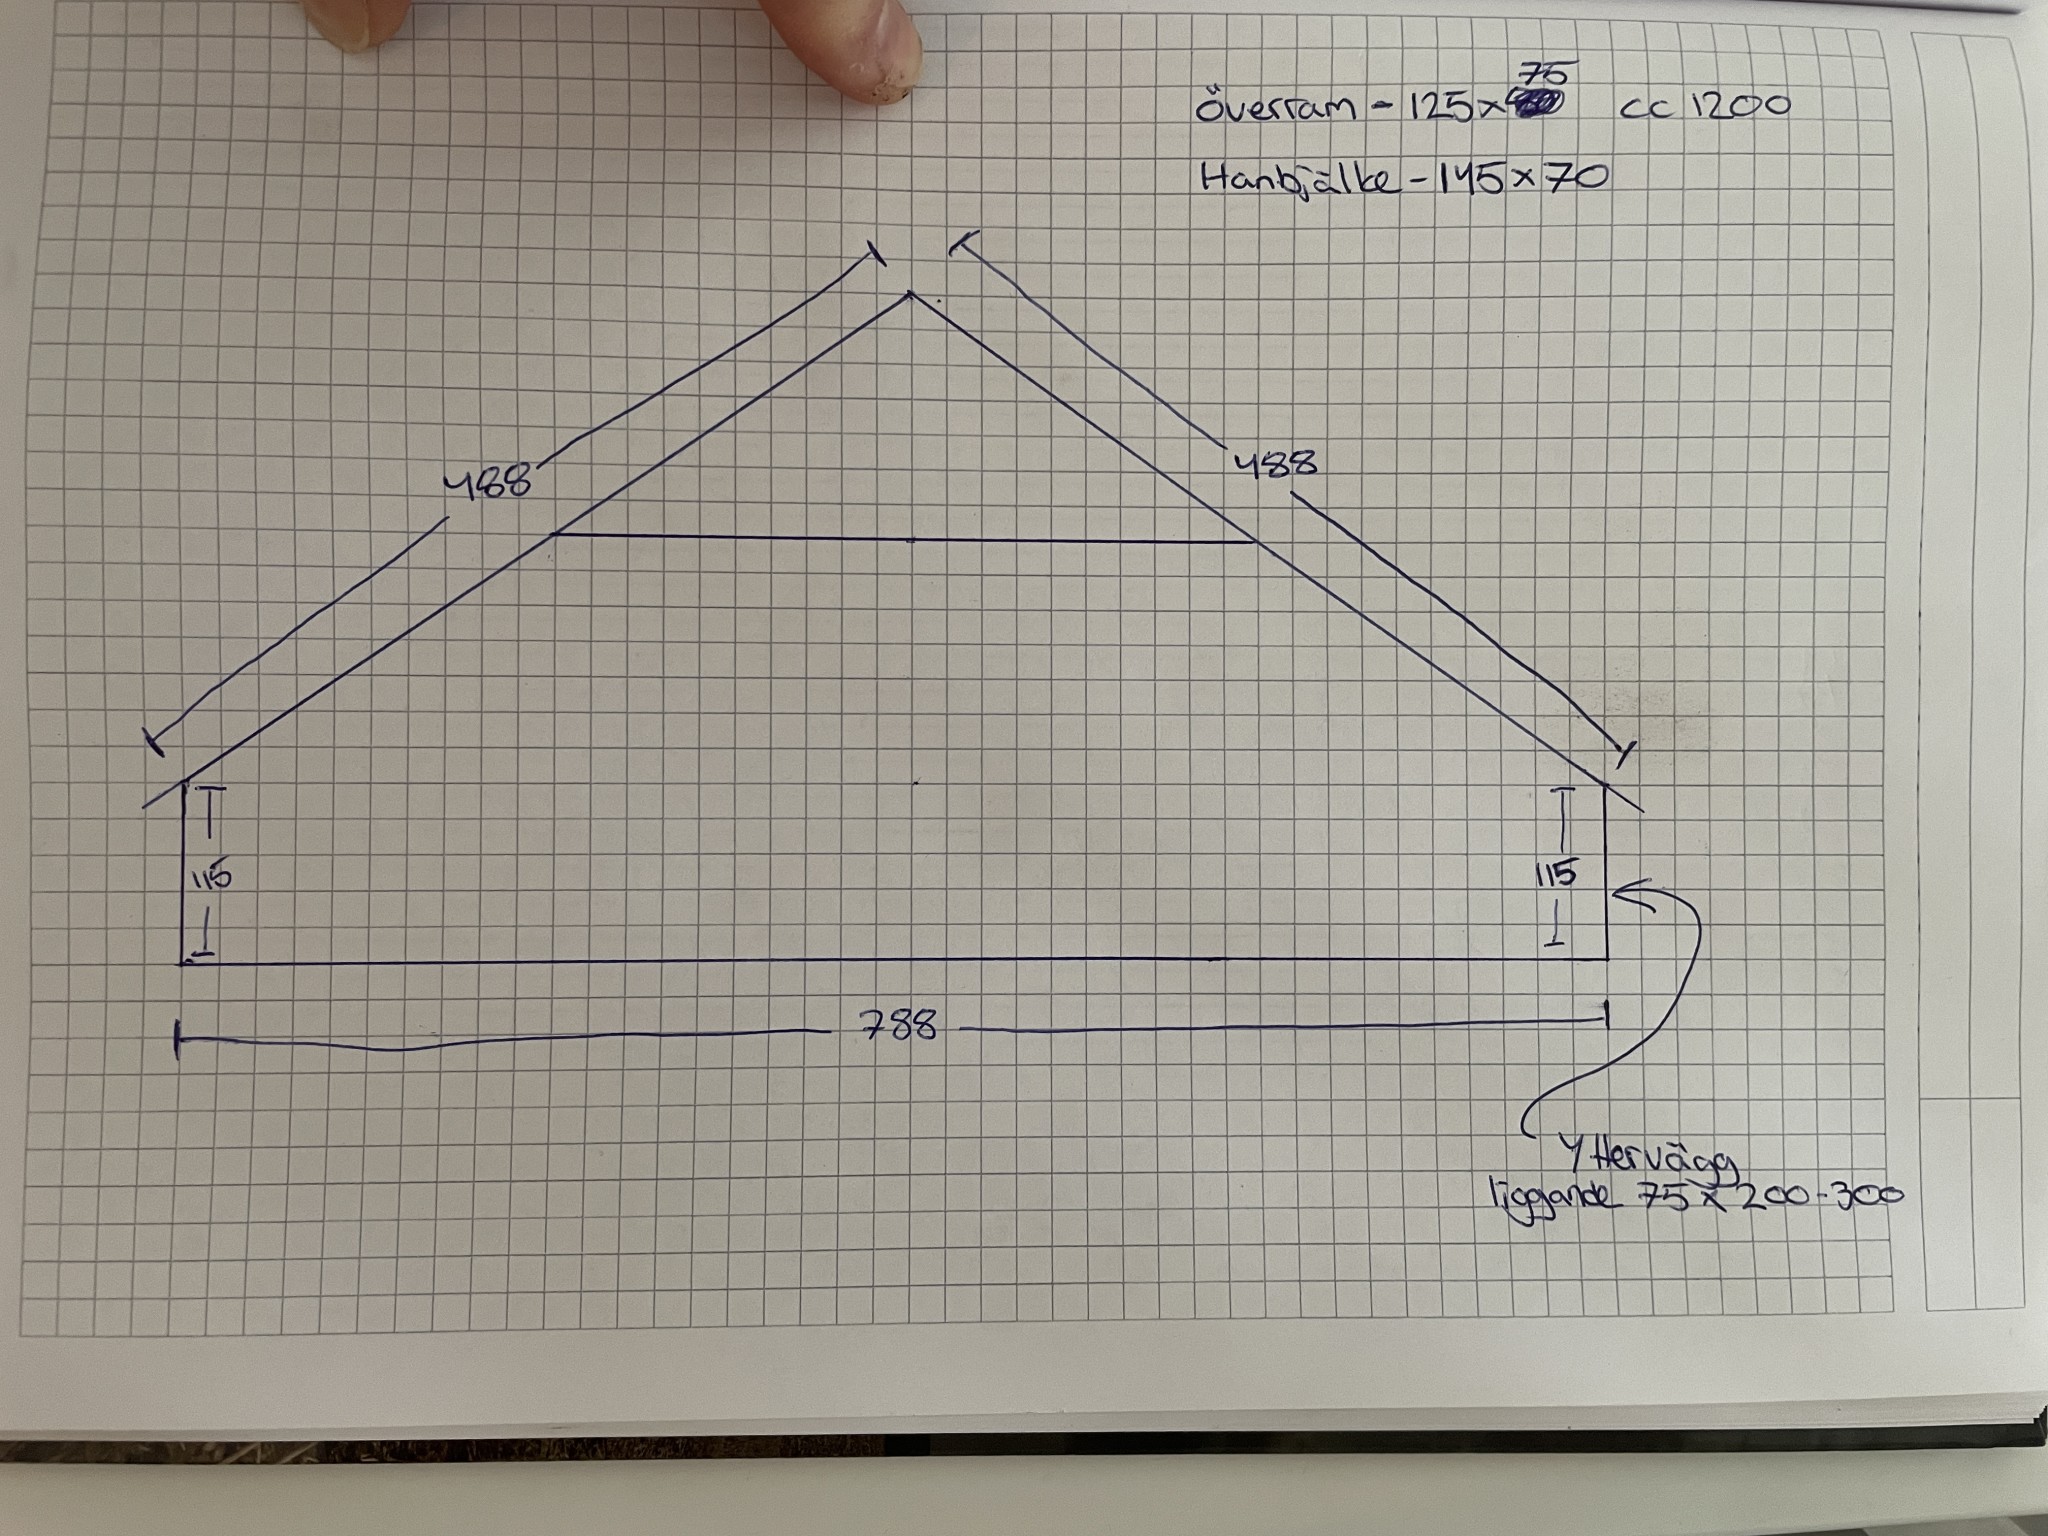 75
Överram - 125x cc 1200
Hanbjälke - 145 x 70
488
488
115
115
788
Yttervägg
liggande 75 x 200-300